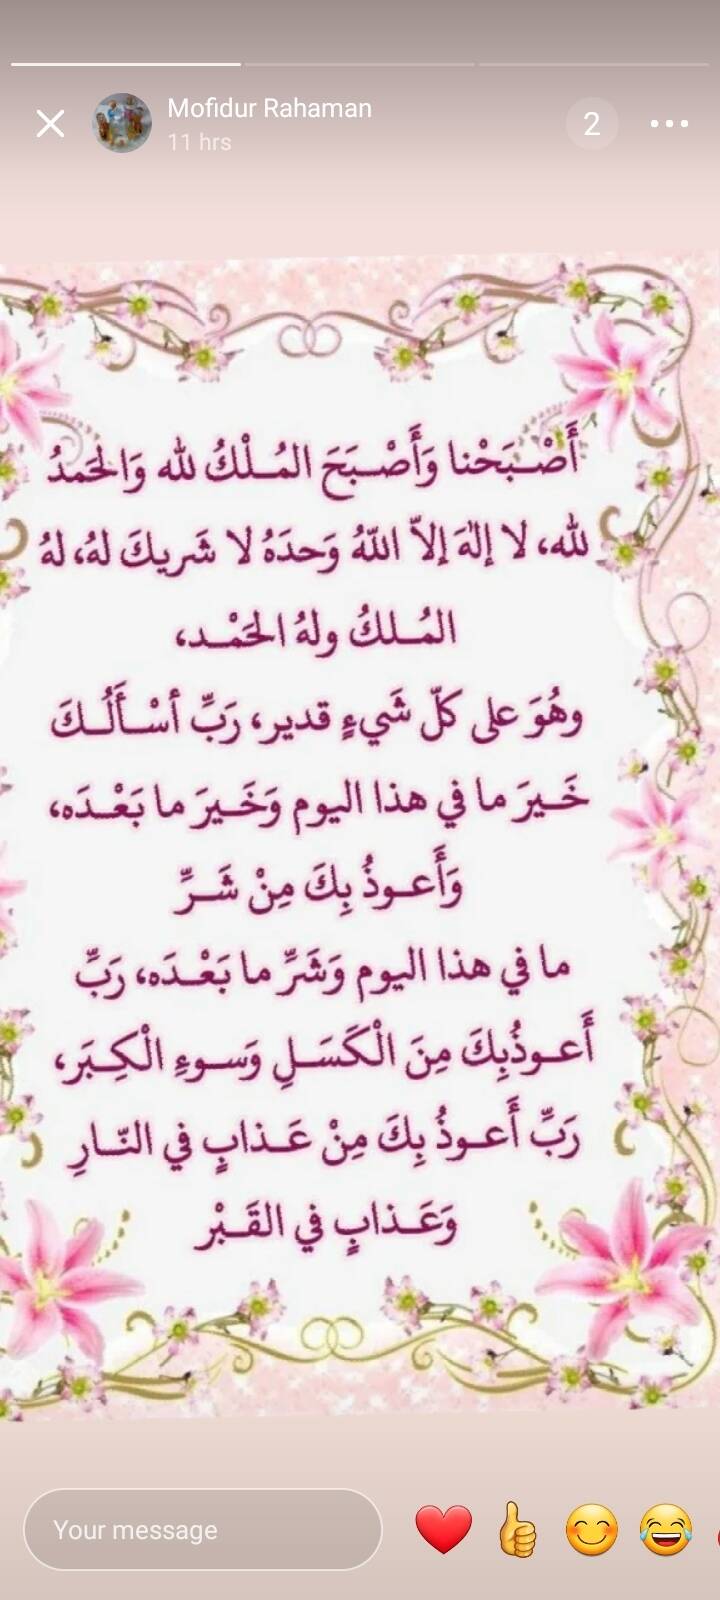 Mofidur Rahaman
11 hrs
2
أَصْـبَحْنا وَأَصْـبَحَ المُـلْكُ لله وَالحَمدُ
لله، لا إلهَ إلاّ اللّهُ وَحدَهُ لا شَريكَ لهُ، لهُ
المُـلكُ ولهُ الحَمْـد،
وهُوَ على كلّ شَيءٍ قدير، رَبِّ أسْـأَلُـكَ
خَـيرَ ما في هذا اليوم وَخَـيرَ ما بَعْـدَه،
وَأَعـوذُ بِكَ مِنْ شَـرِّ
ما في هذا اليوم وَشَرِّ ما بَعْـدَه، رَبِّ
أَعـوذُبِكَ مِنَ الْكَسَـلِ وَسـوءِ الْكِبَر،
رَبِّ أَعـوذُ بِكَ مِنْ عَـذابٍ في النّـارِ
وَعَـذابٍ في القَـبْر
Your message